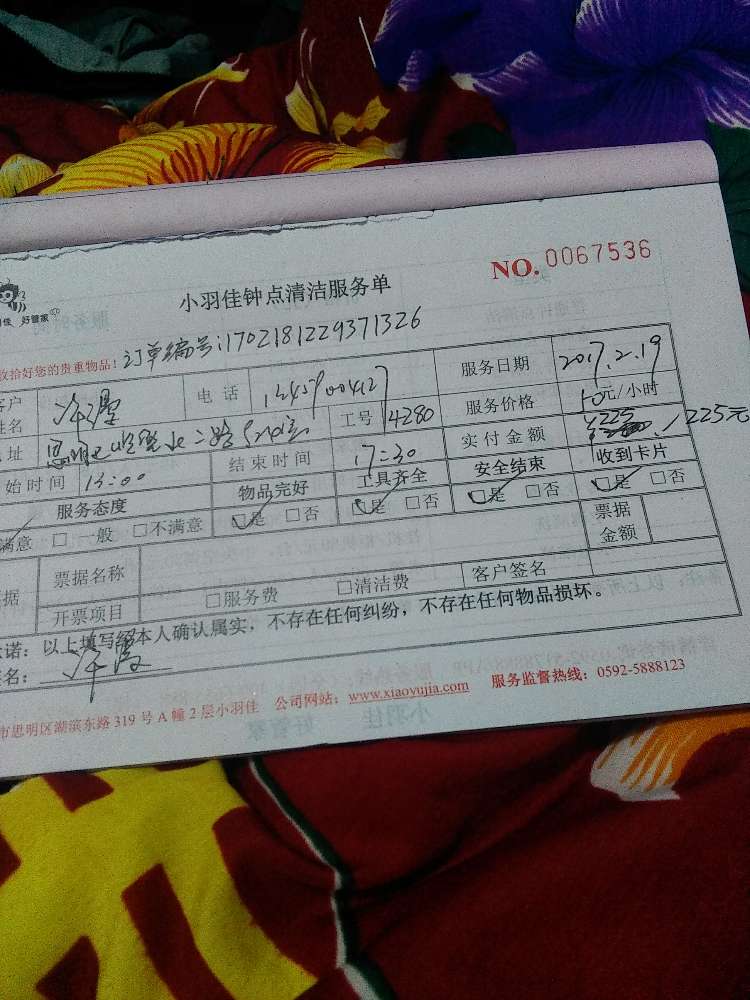 NO. 0067536
小羽佳钟点清洁服务单
好管家
收拾好您的贵重物品! 订单编号:1702181229371326
客户姓名 电话 服务日期 2017.2.19
址 工号 4280 服务价格 元/小时
始时间 13:00 结束时间 17:30 实付金额 ¥225 225元
服务态度 物品完好 工具齐全 安全结束 收到卡片
满意 □ 一般 □不满意 □是 □否 □是 □否 □是 □否 □是 □否
据 票据名称 票据金额
开票项目 □服务费 □清洁费 客户签名
诺：以上填写经本人确认属实，不存在任何纠纷，不存在任何物品损坏。
名：
市思明区湖滨东路 319 号 A 幢 2 层小羽佳 公司网站：www.xiaoyujia.com 服务监督热线：0592-5888123